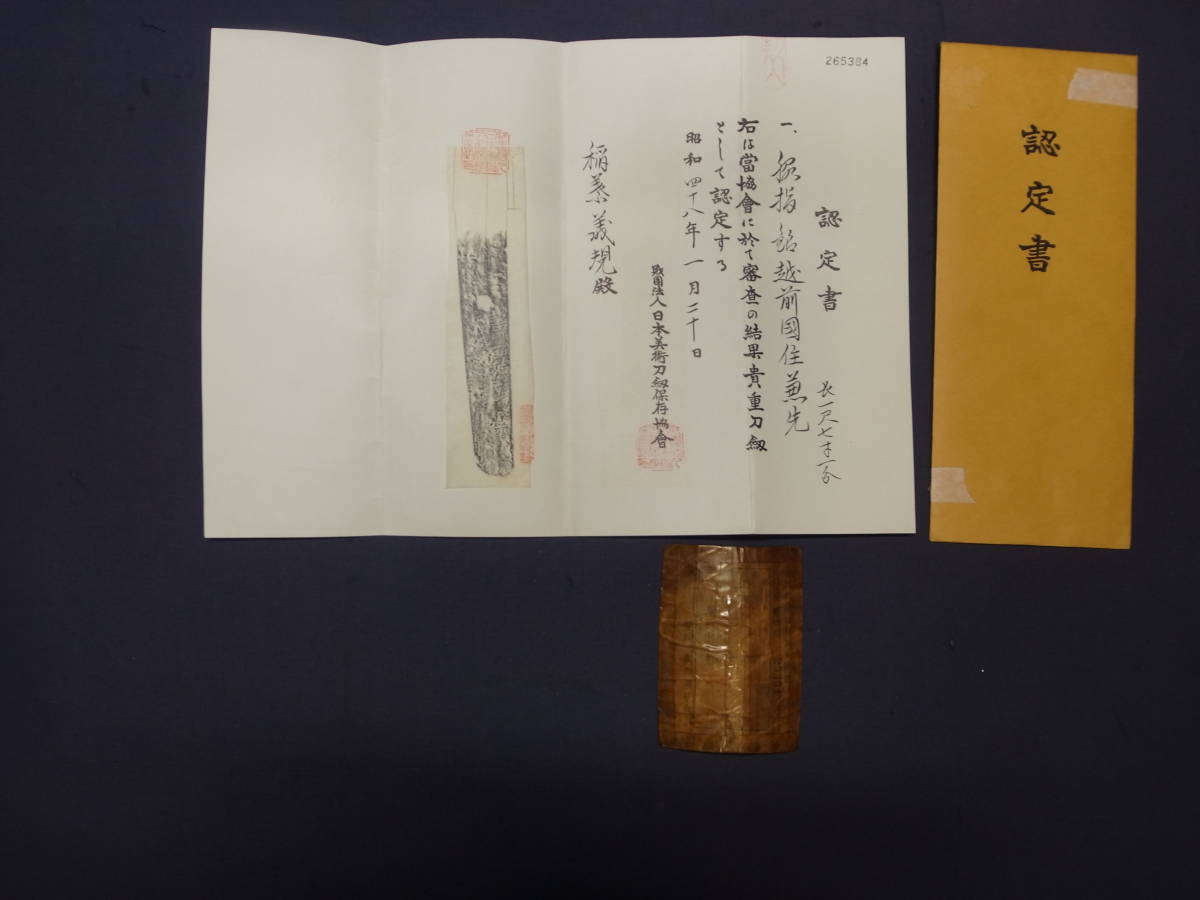 265384
認定書
長一尺七寸一分
一、脇指 銘越前國住兼先
右は當協會に於て審査の結果貴重刀劔
として認定する
昭和四十八年一月二十日
財團法人日本美術刀劔保存協會
義規殿
認定書